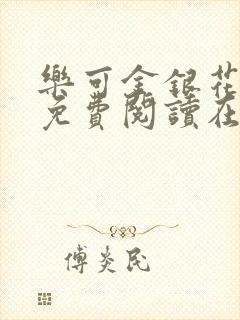 樂可金銀花
免費閱讀在
傅炎民